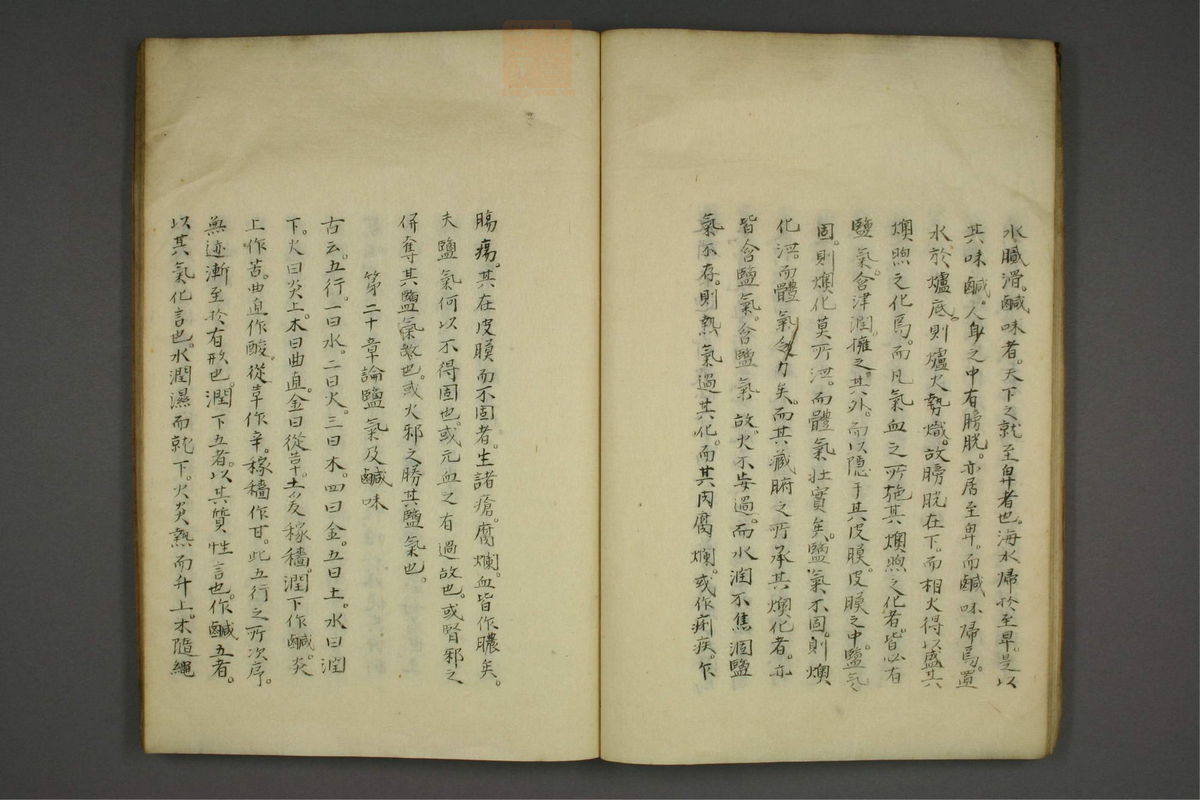 水臟滑。鹹味者。天下之就至卑者也。海水歸於至卑。是以
其味鹹。人身之中有膀胱。亦居至卑。而鹹味歸焉。置
水於爐底。則爐火勢熾。故膀胱在下。而相火得以盛其
燠煦之化焉。而凡氣血之所施其燠煦之化者。皆必有
鹽氣。含津潤。擁之其外。而以隱于其皮膜。皮膜之中。鹽氣
固。則燠化莫所泄。而體氣壯實矣。鹽氣不固。則燠
化泄。而體氣 力矣。而其藏腑之所承其燠化者。亦
皆含鹽氣。含鹽氣。故火不妄過。而水涸不焦涸鹽
氣不存。則熱氣過其化。而其肉腐爛。或作痢疾。乍
腸瘍。其在皮膜而不固者。生諸瘡。腐爛。血皆作膿矣。
夫鹽氣何以不得固也。或元血之有過故也。或腎邪之
併奪其鹽氣故也。或火邪之勝其鹽氣也。
第二十章論鹽氣及鹹味
古云。五行。一曰水。二曰火。三曰木。四曰金。五曰土。水曰潤
下。火曰炎上。木曰曲直。金曰從革。土爰稼穡。潤下作鹹。炎
上作苦。曲直作酸。從革作辛。稼穡作甘。此五行之所次序。
無迹漸至於有形也。潤下五者。以其質性言也。作鹹五者。
以其氣化言也。水潤濕而就下。火炎熱而升上。木隨繩